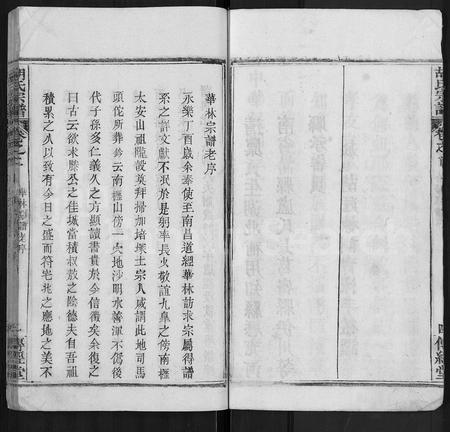 華林宗譜老序
永樂丁酉歲余奉使至南昌道經華林訪求宗屬得譜
系之詳文獻不泯於是躬率長火敬謁九臯之傍南櫪
太安山祖隴設奠拜掃加培塚土宗人咸謂此地司馬
頭陀所葬鈐云南櫪山傍一穴地沙明水善渾不偽後
代子孫多仁義久之方顯讀書貴於今信徵矣余復之
曰古云欲求滕公之佳城當積叔敖之陰德夫自吾祖
積累之久以致有今日之盛而符宅兆之應地之美不
胡氏宗譜
卷之
華林宗譜老序
傳經堂
胡氏宗譜
傳經堂